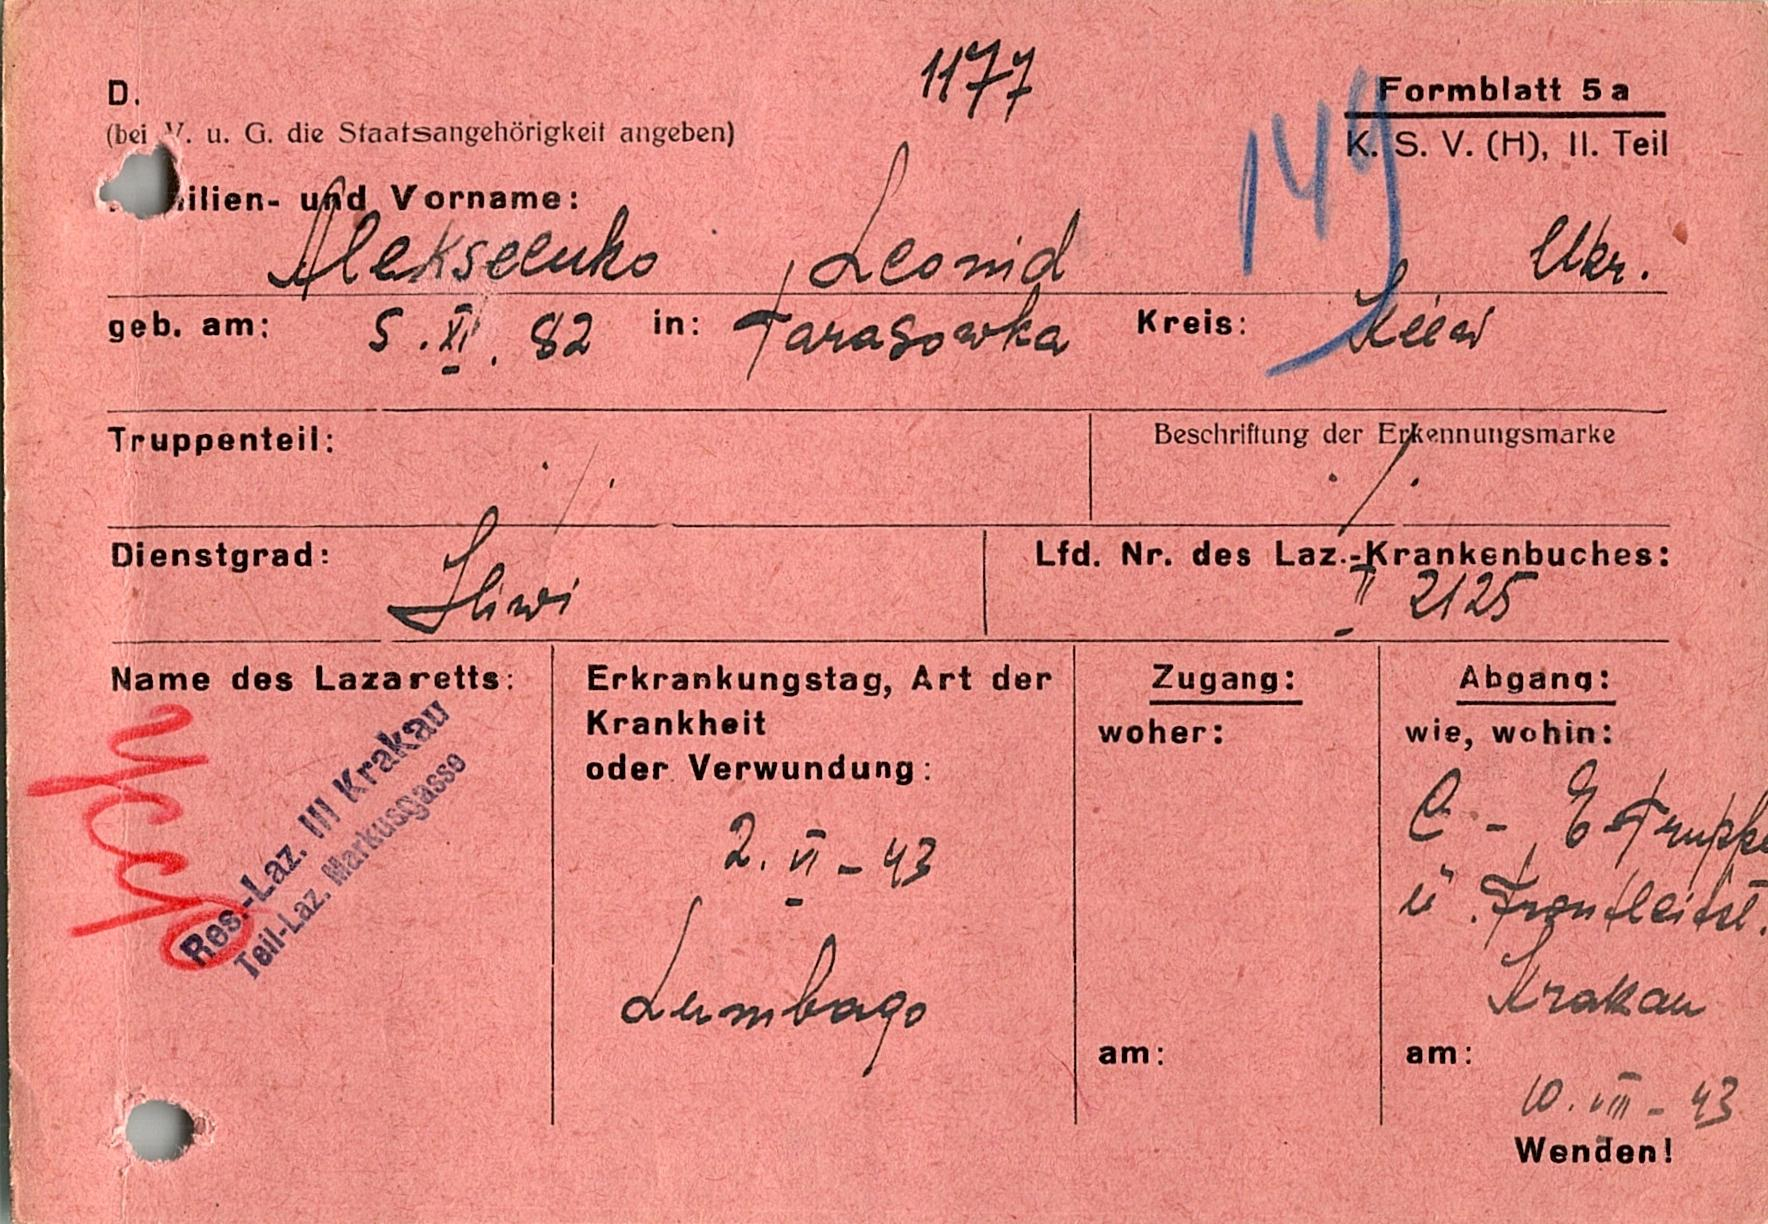 D.
1177
Formblatt 5a
(bei V. u. G. die Staatsangehörigkeit angeben)
149
K. S. V. (H), II. Teil
ilien- und Vorname:
Alekseenko , Leonid Ukr.
geb. am: 5. XI. 82 in: Tarasowka Kreis: Kiew
Truppenteil: ./.
Beschriftung der Erkennungsmarke
./.
Dienstgrad: Hiwi
Lfd. Nr. des Laz.-Krankenbuches:
II 2125
Name des Lazaretts:
Res.-Laz. III Krakau
Teil-Laz. Markusgasse
Erkrankungstag, Art der
Krankheit
oder Verwundung:
2. VI - 43
Lumbago
Zugang:
woher:
am:
Abgang:
wie, wohin:
C - E Truppe
ü. Frontleitst.
Krakau
am:
10. VIII - 43
Wenden!